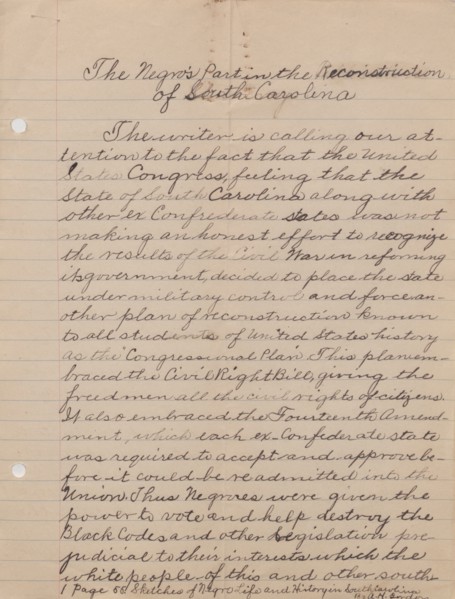 The Negro's Part in the Reconstruction
of South Carolina
The writer is calling our at-
tention to the fact that the United
States Congress, feeling that the
State of South Carolina along with
other ex Confrederate states was not
making an honest effort to recognize
the results of the Civil War in reforming
its government, decided to place the state
under military control and force an-
other plan of reconstruction known
to all students of United States history
as the Congressional Plan. This plan em-
braced the Civil Right Bill, giving the
freedmen all the civil rights of citizens.
It also embraced the Fourteenth Amend-
ment, which each ex-Confederate state
was required to accept and approve be-
fore it could be readmitted into the
Union. Thus Negroes were given the
power to vote and help destroy the
Black Codes and other legislation pre
judicial to their interests which the
white people of this and other south-
1 Page 58 Sketches of Negro Life and History in South Carolina